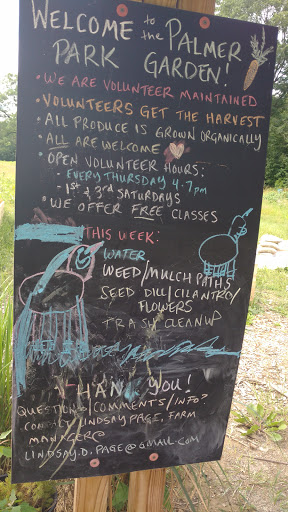 WELCOME to the PALMER
PARK GARDEN!
• WE ARE VOLUNTEER MAINTAINED
• VOLUNTEERS GET THE HARVEST
• ALL PRODUCE IS GROWN ORGANICALLY
• ALL ARE WELCOME
• OPEN VOLUNTEER HOURS:
• EVERY THURSDAY 4-7pm
• 1st & 3rd SATURDAYS
• WE OFFER FREE CLASSES
THIS WEEK:
WATER
WEED/MULCH PATHS
SEED DILL/CILANTRO/
FLOWERS
TRASH CLEANUP
THANK YOU!
QUESTIONS/COMMENTS/INFO?
CONTACT LINDSAY PAGE, FARM
MANAGER@
LINDSAY.D.PAGE@GMAIL.COM